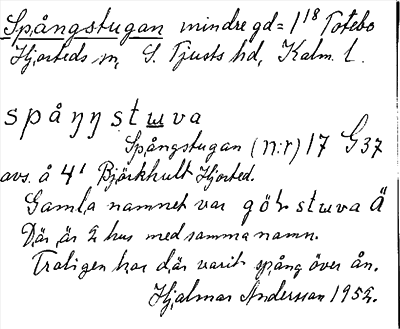 Spångstugan mindre gd = 1¹⁸ Totebo
Hjorteds sn, S. Tjusts hd, Kalm. l.
spåŋŋstɯva
Spångstugan (n:r) 17 G 37
avs. å 4¹ Björkhult Hjorted.
Gamla namnet var götstɯva Ä
Där är 2 hus med samma namn.
Troligen har där varit spång över ån.
Hjalmar Andersson 1952.